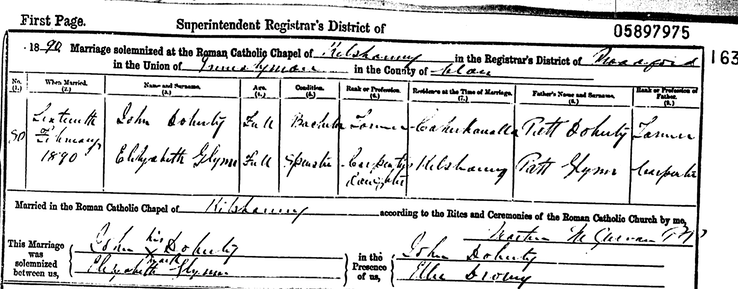 First Page.
Superintendent Registrar's District of
05897975
1890 Marriage solemnized at the Roman Catholic Chapel of Kilshanny in the Registrar's District of
163
in the Union of Ennistymon in the County of Clare
No. (1.) When Married. (2.) Name and Surname. (3.) Age. (4.) Condition. (5.) Rank or Profession. (6.) Residence at the Time of Marriage. (7.) Father's Name and Surname. (8.) Rank or Profession of Father. (9.)
Sixteenth John Doherty Full Bachelor Farmer Patt Doherty Farmer
of February
1890 Elizabeth Glynn Full Spinster Carpenter's Kilshanny Patt Glynn Carpenter
Daughter
Married in the Roman Catholic Chapel of Kilshanny according to the Rites and Ceremonies of the Roman Catholic Church by me,
This Marriage was solemnized between us,
John his X mark Doherty
Elizabeth Glynn
in the Presence of us,
John Doherty
Ellie